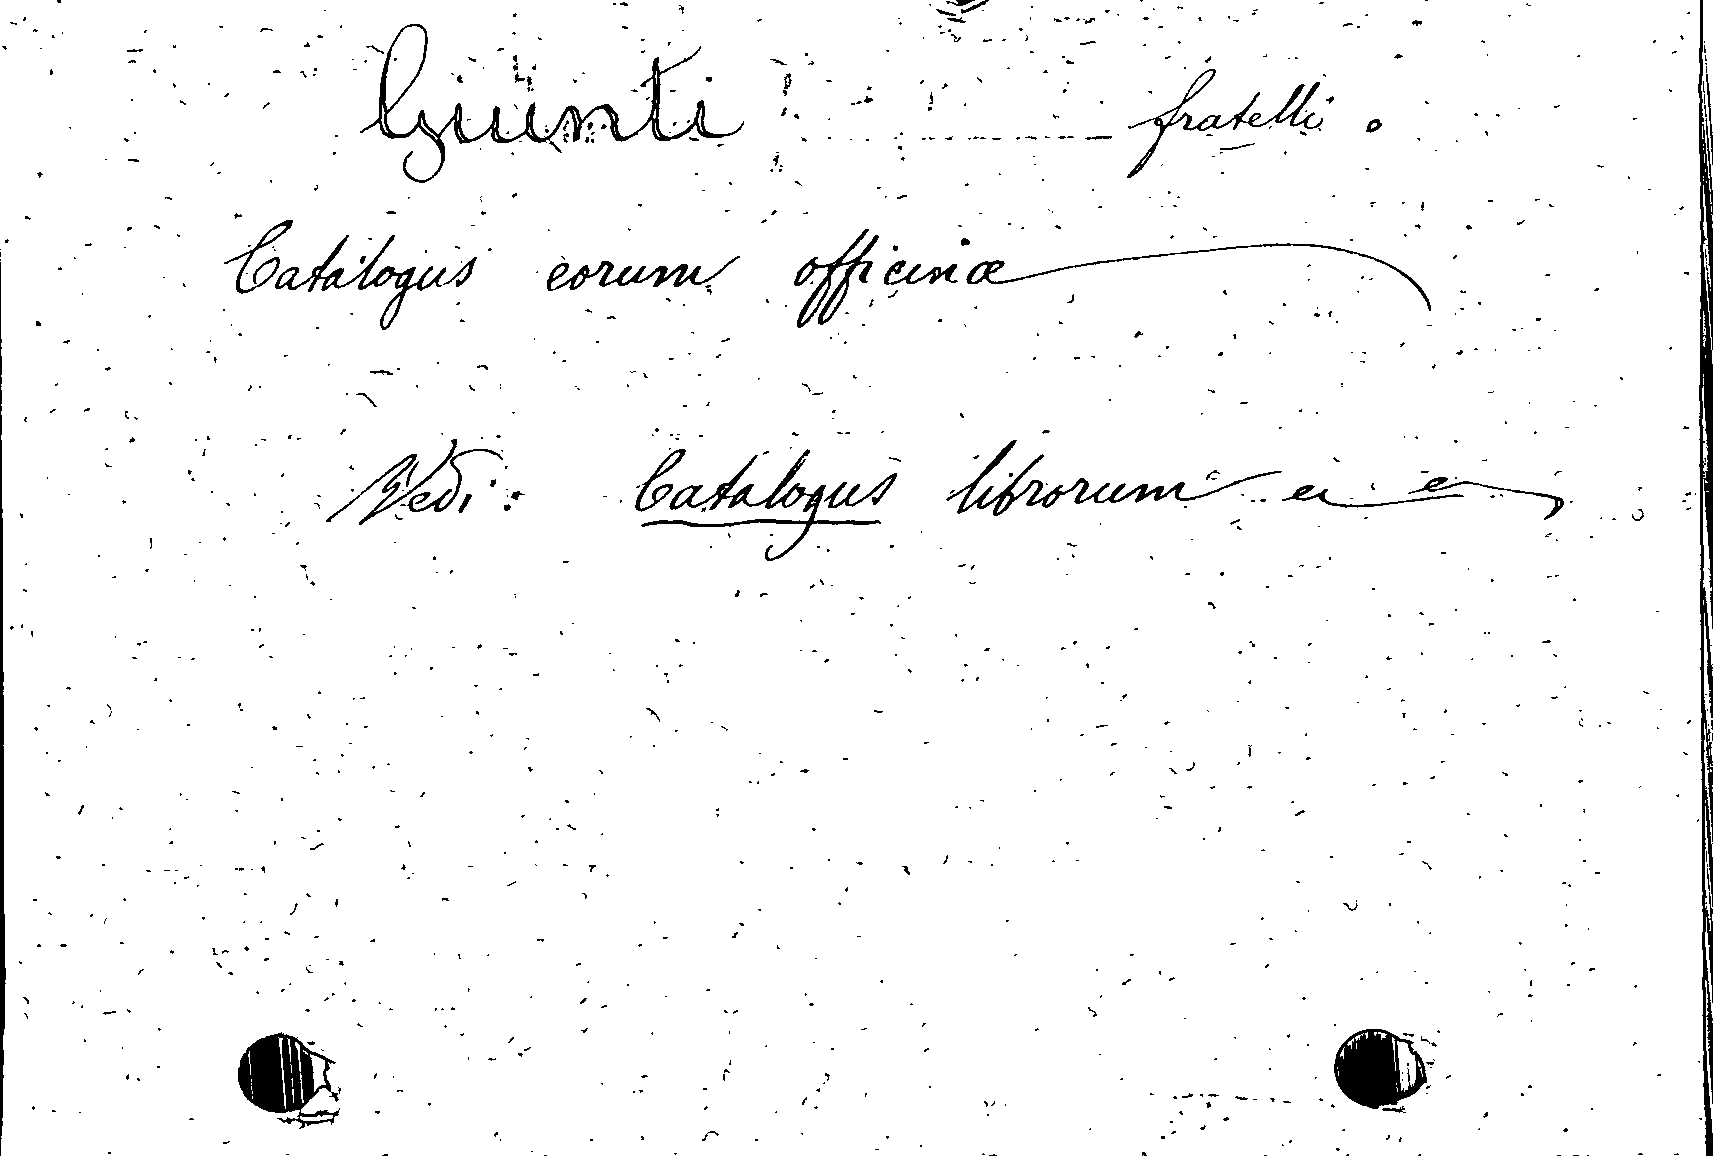 Giunti fratelli.
Catalogus eorum officinæ
Vedi: Catalogus librorum